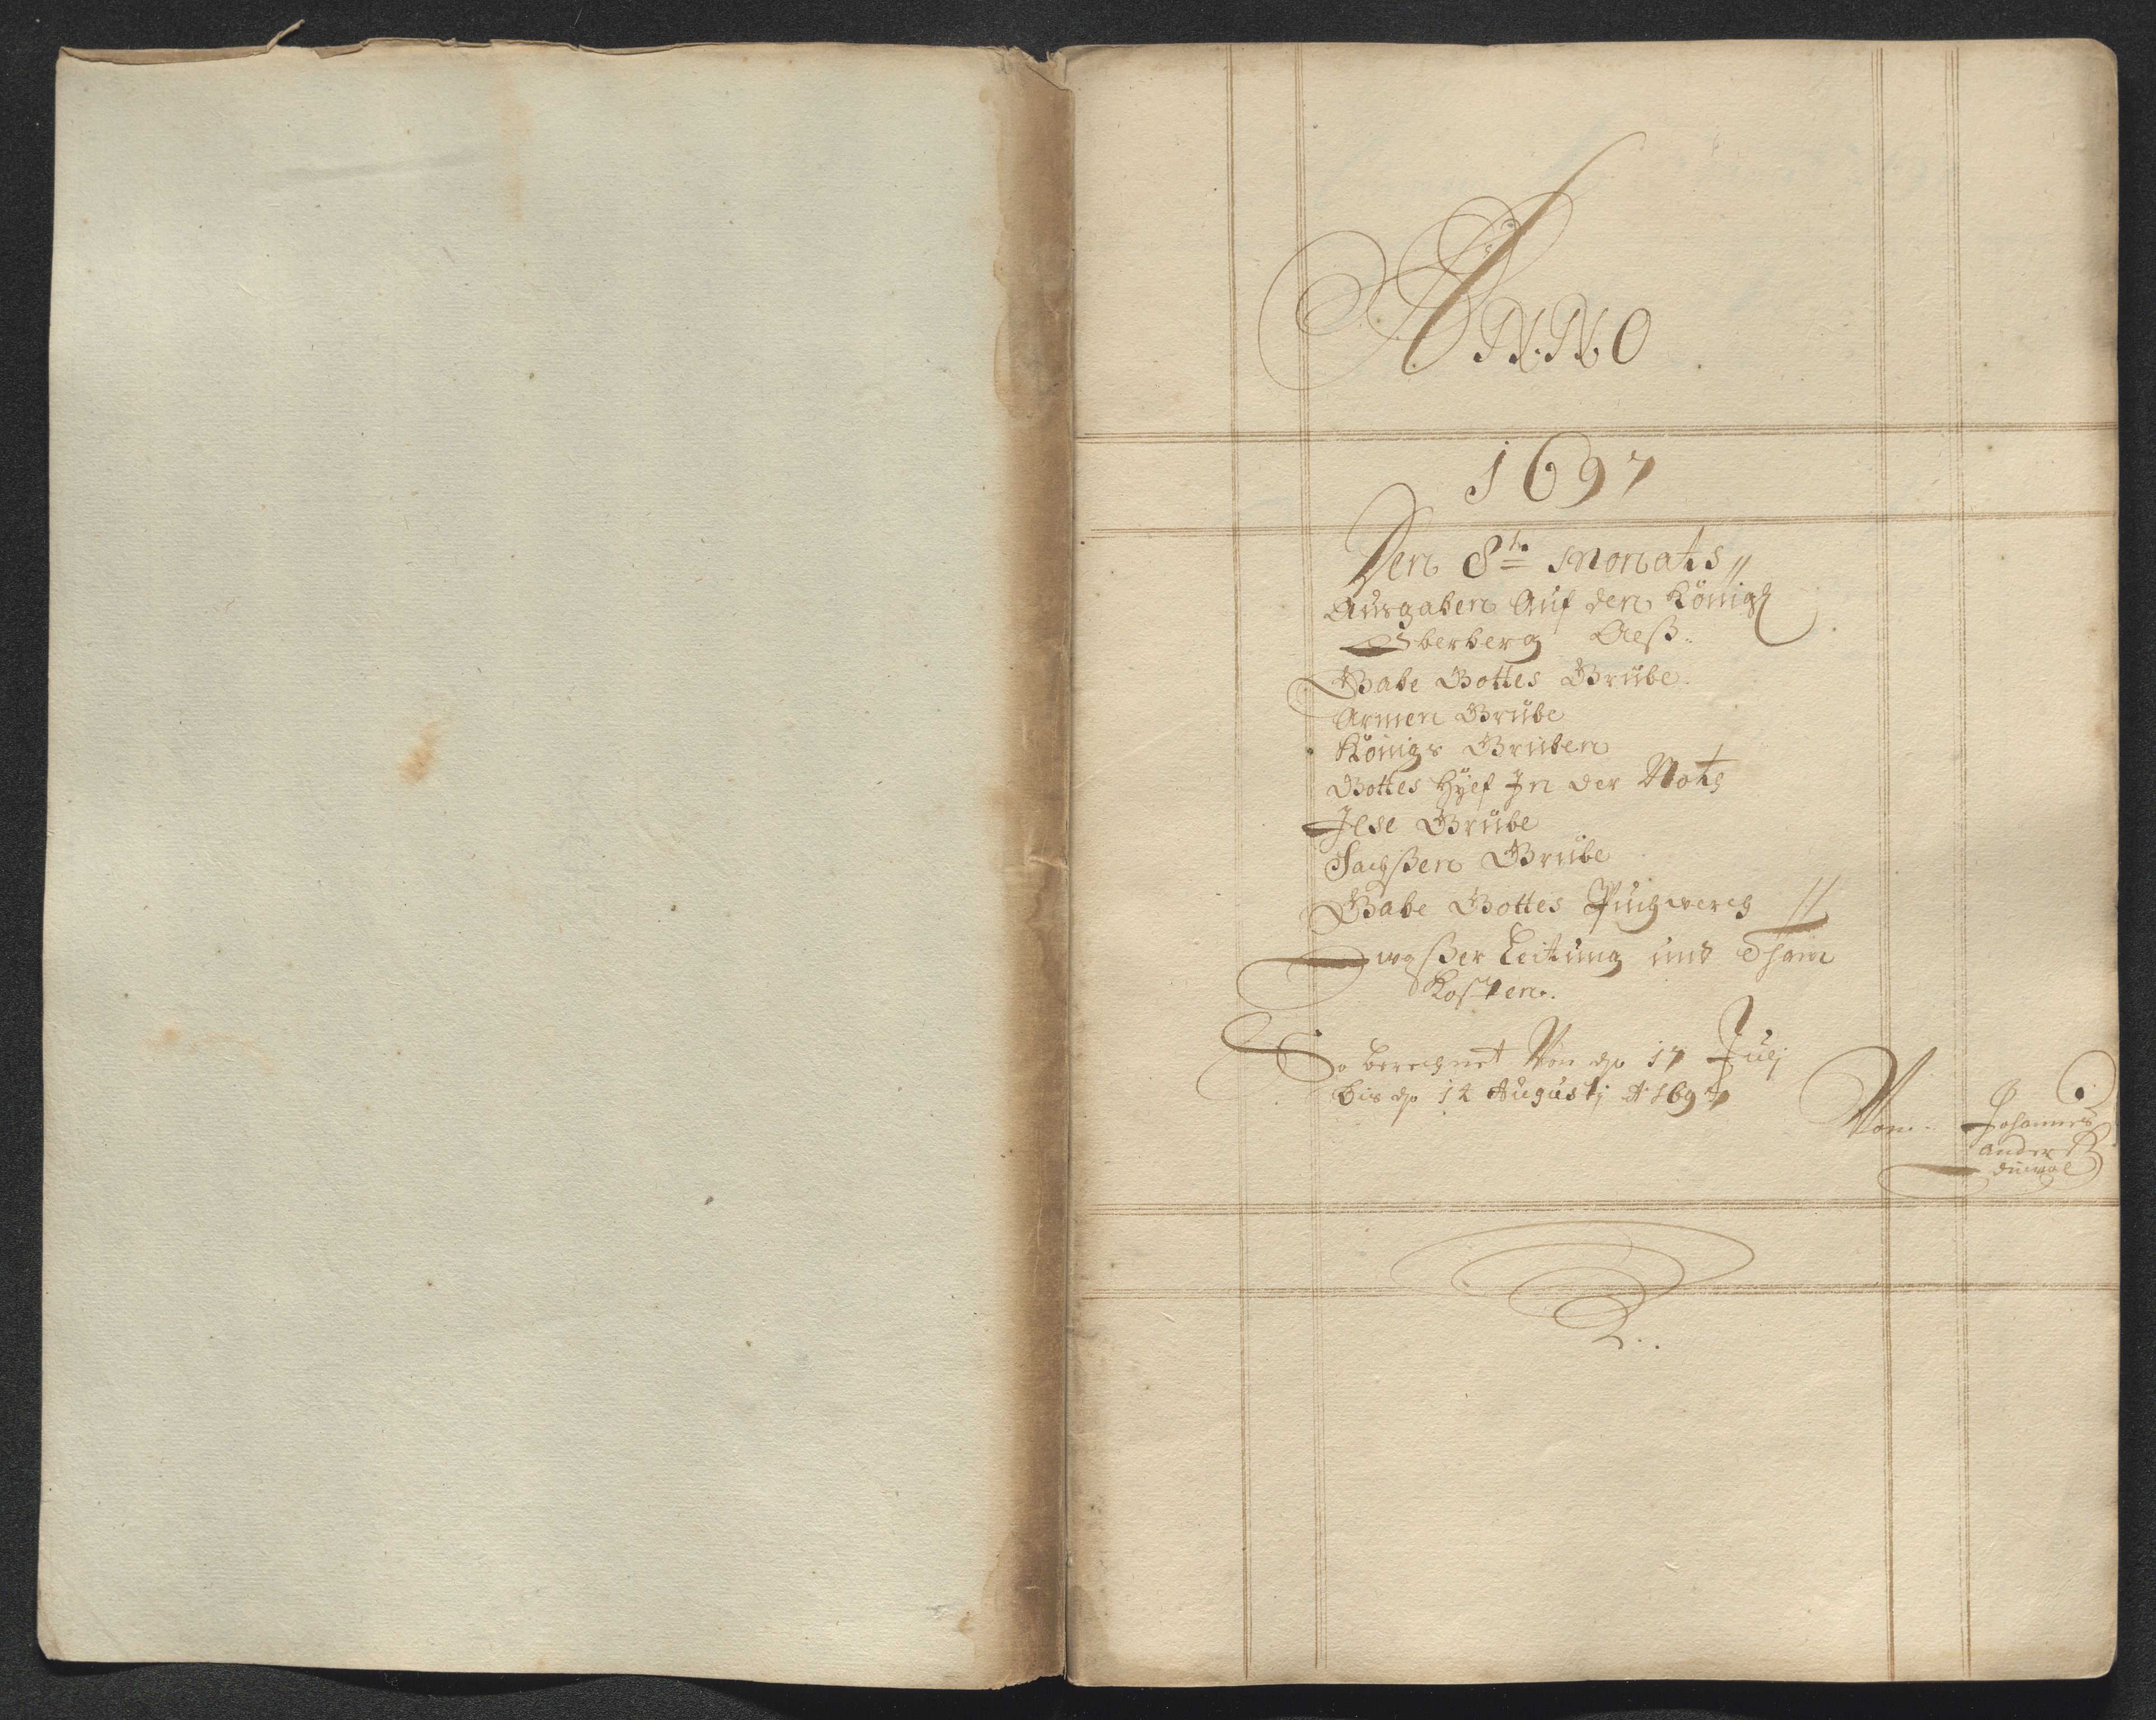 ANNO
1697
Den 8te Monats
Ausgaben Auf den Königl
Oberberg Als:
Gabe Gottes Grübe
Armen Grübe
Königs Grüben
Gottes Hÿlf In der Noht
Ilse Grübe
Sachßen Grübe
Gabe Gottes Puchwerch
waßer Leitung und Tham
Kosten.
So berechnet Von dn 17 Julj
bis dn 14 Augustj Ao 1697
Von Johannes
Anderß